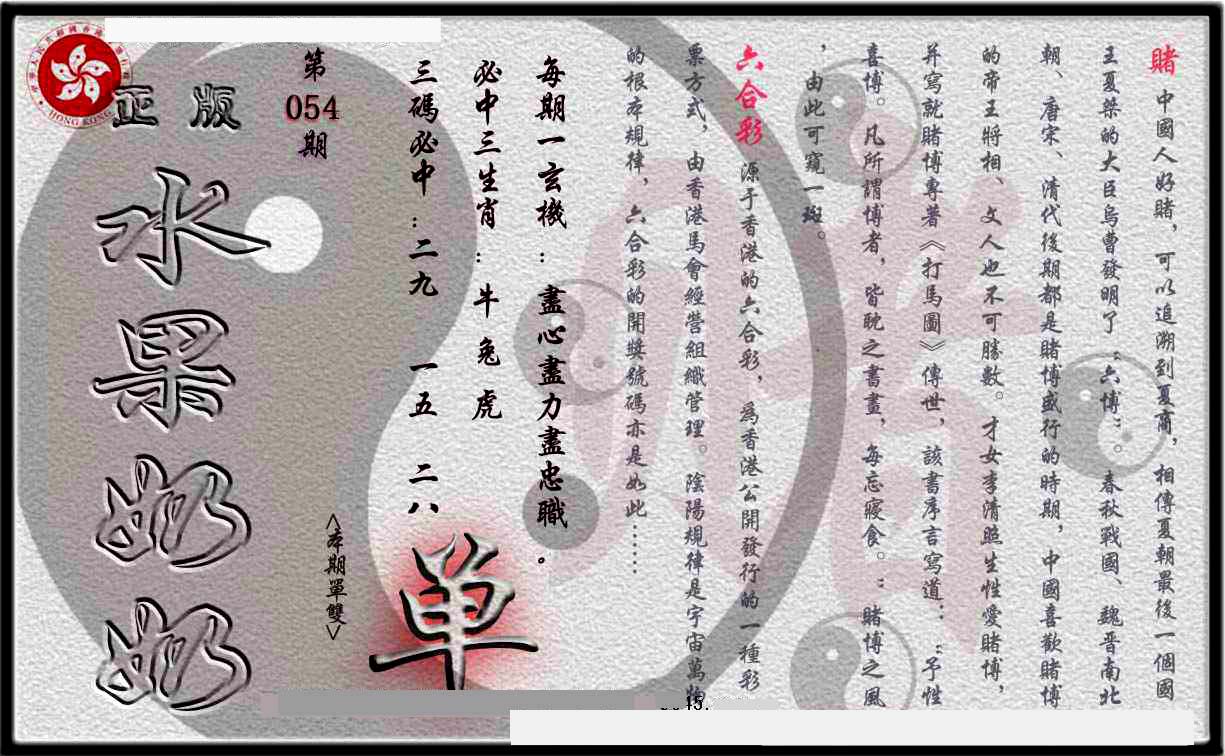 賭 中國人好賭，可以追溯到夏商，相傳夏朝最後一個國
王夏桀的大臣烏曹發明了“六博”。春秋戰國、魏晋南北
朝、唐宋、清代後期都是賭博盛行的時期，中國喜歡賭博
的帝王將相、文人也不可勝數。才女李清照生性愛賭博，
并寫就賭博專著《打馬圖》傳世，該書序言寫道：“予性
喜博。凡所謂博者，皆耽之書畫，每忘寢食。”賭博之風
，由此可窺一斑。
六合彩 源于香港的六合彩，為香港公開發行的一種彩
票方式，由香港馬會經營組織管理。陰陽規律是宇宙萬物
的根本規律，六合彩的開獎號碼亦是如此……
每期一玄機：盡心盡力盡忠職。
必中三生肖：牛 兔 虎
三碼必中：二九 一五 二八
單
<本期單雙>
第
054
期
正版
水果奶奶
HONG KONG